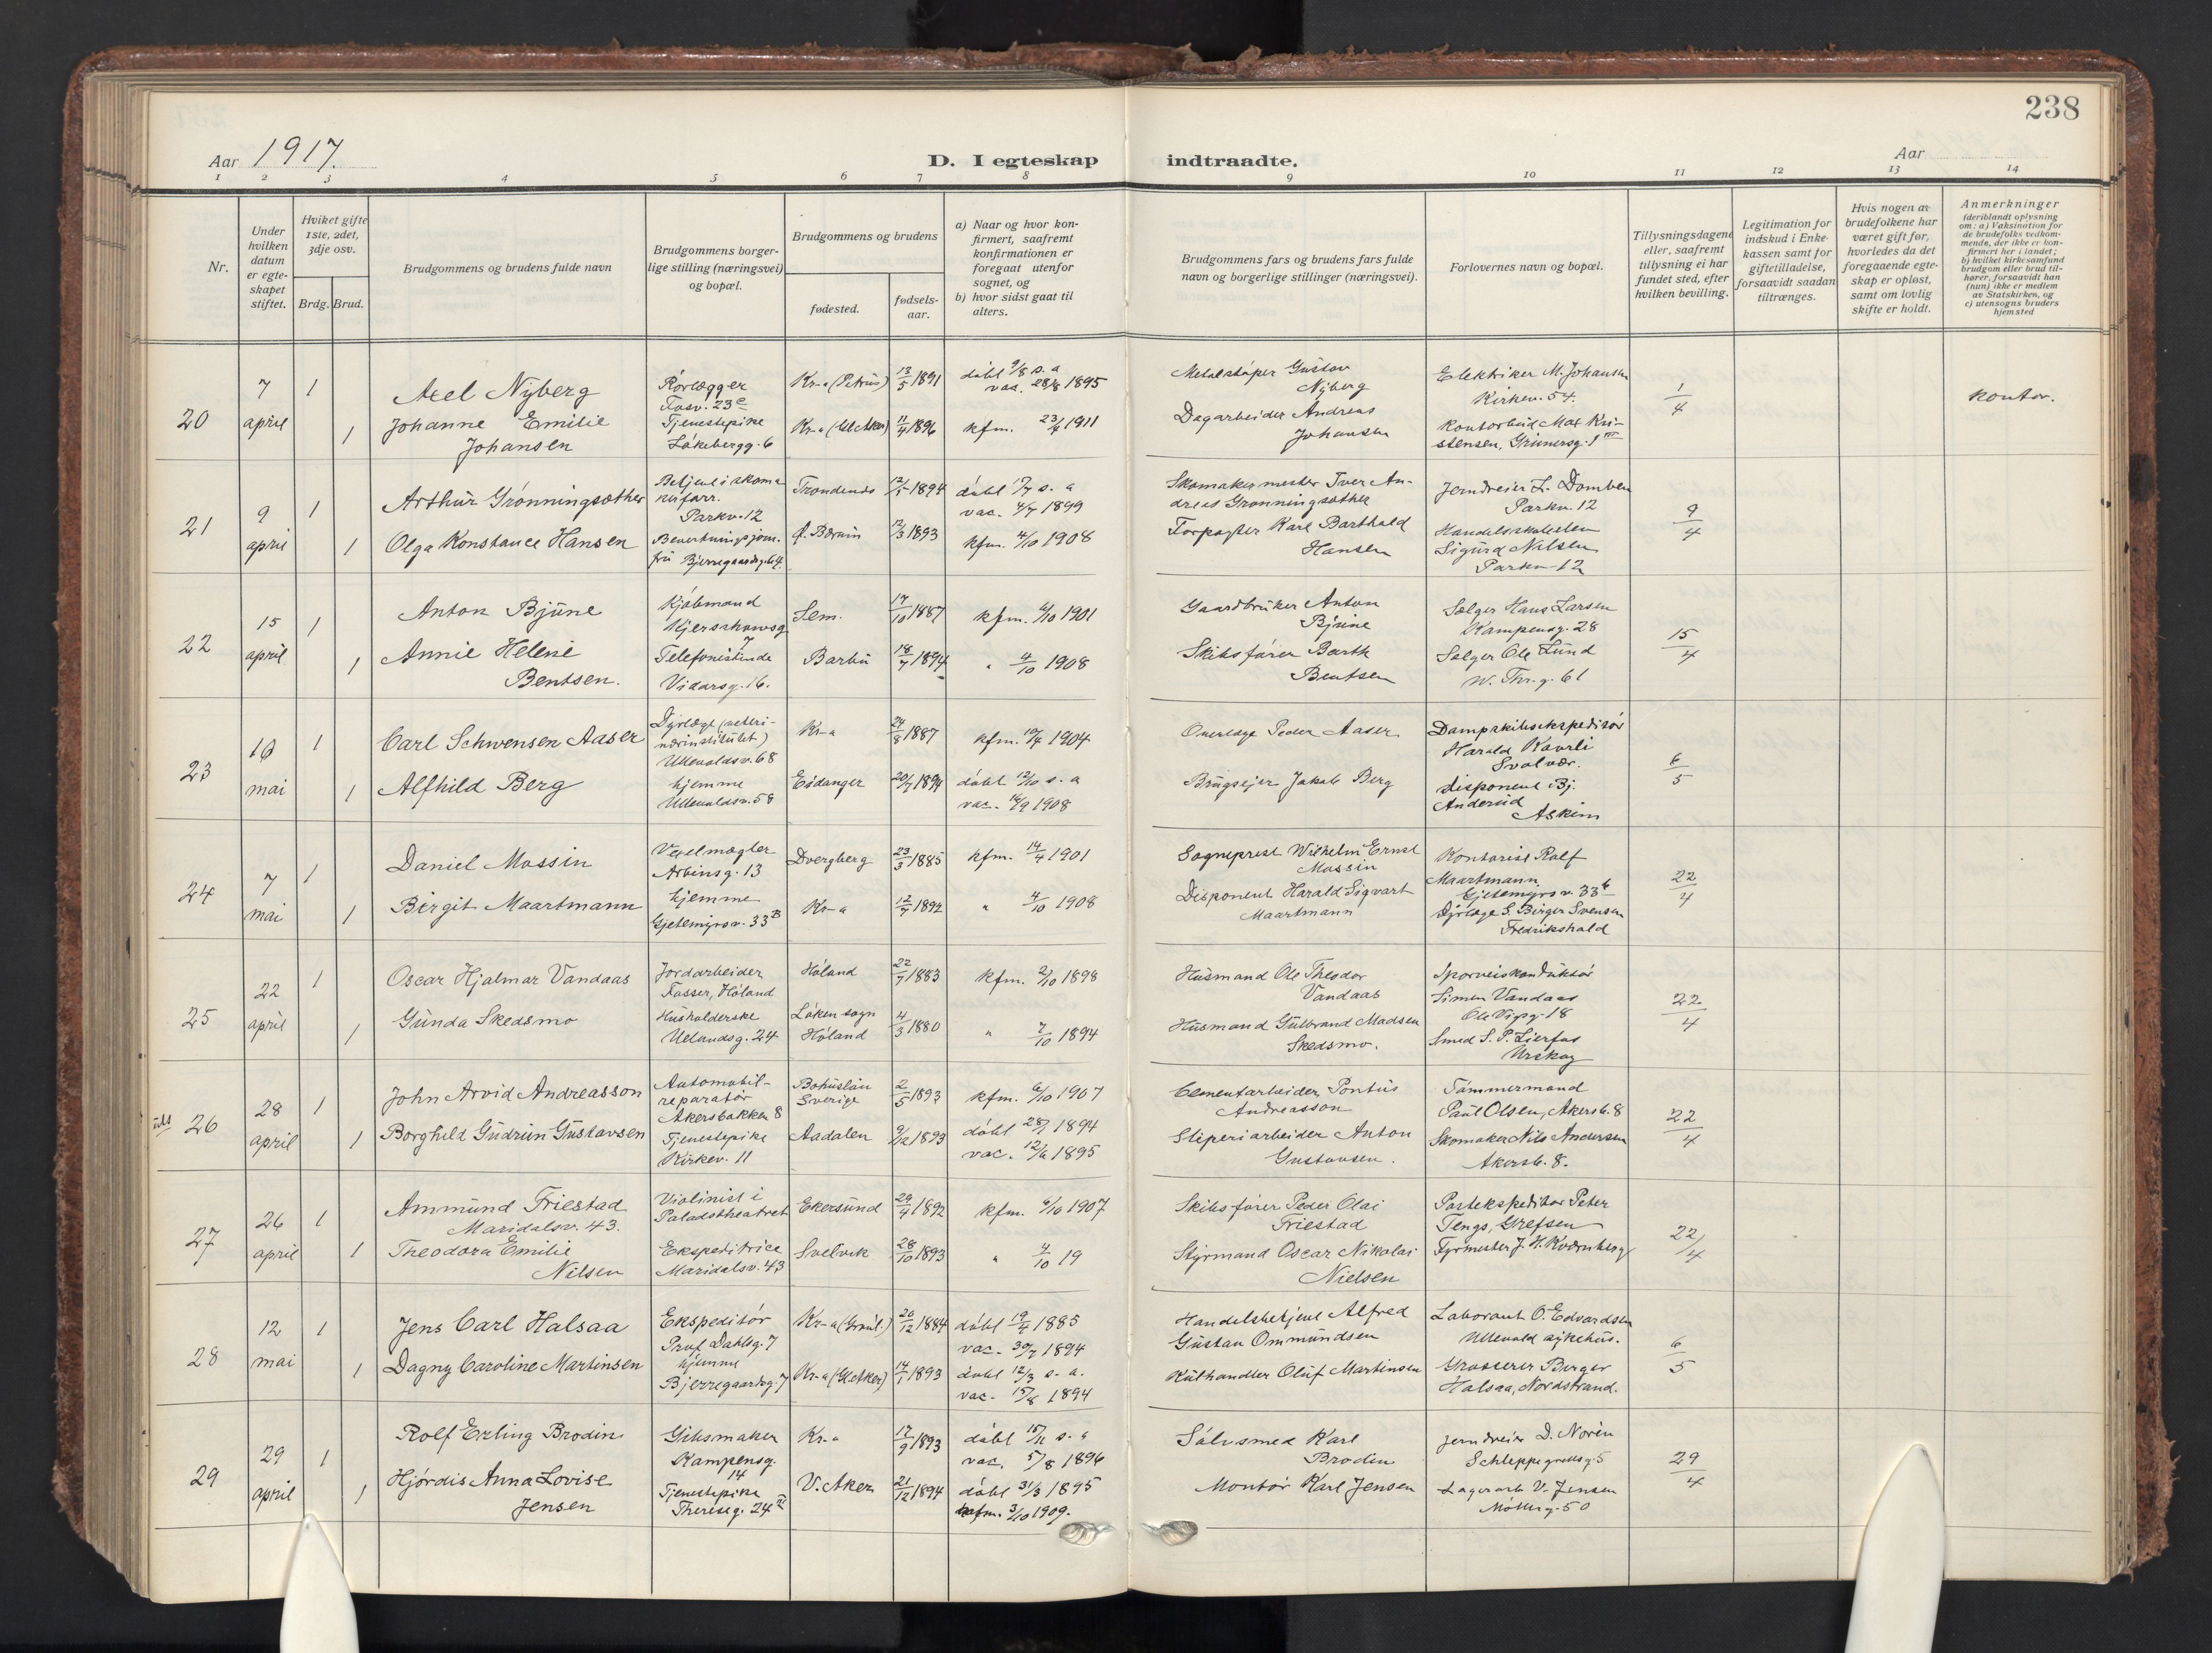 238
Aar 1917.
D. I egteskap indtraadte.
Aar
1 2 3 4 5 6 7 8 9 10 11 12 13 14
Nr.
Under hvilken datum er egteskapet stiftet.
Hvilket gifte 1ste, 2det, 3dje osv.
Brdg. Brud.
Brudgommens og brudens fulde navn
Brudgommens borgerlige stilling (næringsvei) og bopæl.
Brudgommens og brudens
fødested.
fødsels-aar.
a) Naar og hvor konfirmert, saafremt konfirmationen er foregaat utenfor sognet, og
b) hvor sidst gaat til alters.
Brudgommens fars og brudens fars fulde navn og borgerlige stillinger (næringsvei).
Forlovernes navn og bopæl.
Tillysningsdagene eller, saafremt tillysning ei har fundet sted, efter hvilken bevilling.
Legitimation for indskud i Enkekassen samt for giftetilladelse, forsaavidt saadan tiltrænges.
Hvis nogen av brudefolkene har været gift før, hvorledes da det foregaaende egteskap er opløst, samt om lovlig skifte er holdt.
Anmerkninger
(deriblandt oplysning om: a) Vaksination for de brudefolks vedkommende, der ikke er konfirmert her i landet;
b) hvilket kirkesamfund brudgom eller brud tilhører, forsaavidt han (hun) ikke er medlem av Statskirken, og
c) utensogns bruders hjemsted
20
7 april
1
Axel Nyberg
Rørlægger
Fosv. 23 e
Kr-a (Petrus)
13/5 1891
døbt 9/8 s. a
vac. 28/8 1895
Metalstøper Gustav
Nyberg
Elektriker M. Johansen
Kirkev. 54.
1/4
kontor.
1
Johanne Emilie
Johansen
Tjenestepike
Løkebergg. 6
kfm. 23/4 1911
Dagarbeider Andreas
Johansen
Kontorbud Max Kri-
stensen, Grünersg. 1 III
21
9 april
1
Arthur Grønningsæther
Betjent i skoma
kerforr.
Parkv. 12
12/5 1894
døbt 17/7 s. a
vac. 4/7 1899
Skomakermester Iver An-
dreas Grønningsæther
Jerndreier L. Domben
Parkv. 12
9/4
1
Olga Konstance Hansen
Bevertningsjom-
fru Bjerregaardsg. 64.
Ø. Bærum
12/3 1893
kfm. 4/10 1908
Forpagter Karl Barthold
Hansen
Handelsskoleelev
Sigurd Nilsen
Parkv. 12
22
15 april
1
Anton Bjune
Kjøbmand
Kjerschowsg
7
Sem.
17/10 1887
kfm. 6/10 1901
Gaardbruker Anton
Bjune
Sælger Hans Larsen
Kampensg. 28
15/4
1
Annie Helene
Bentsen.
Telefonistinde
Vidarsg. 16.
Barbu
18/7 1894
" 4/10 1908
Skibsfører Barth
Bentsen
Sælger Ole Lund
W. Thr. g. 61
23
10 mai
1
Carl Schwensen Aaser
Dyrlæge (veteri-
nærinstitutet)
Ullevaldsv. 68
Kr-a
24/8 1887
kfm. 10/4 1904
Overlæge Peder Aaser
Dampskibsekspeditør
Harald Kavrli
Svolvær.
6/5
1
Alfhild Berg
hjemme
Ullevaldsv. 58
Eidanger
20/7 1894
døbt 12/10 s. a
vac. 14/9 1908
Brugseier Jakob Berg
disponent Bj.
Anderud
Askim
24
7 mai
1
Daniel Mossin
Vexelmægler
Arbinsg. 13
Dvergberg
23/3 1885
kfm. 14/4 1901
Sogneprest Wilhelm Ernst
Mossin
Kontorist Rolf
Maartmann
Gjetemyrsv. 33 b
22/4
1
Birgit Maartmann
hjemme
Gjetemyrsv. 33 B
Kr-a
12/7 1892
" 4/10 1908
Disponent Harald Sigvart
Maartmann
Dyrlæge S. Birger Svensen
Fredrikshald
25
22 april
1
Oscar Hjalmar Vandaas
Jordarbeider
Fosser, Høland
Høland
22/7 1883
kfm. 2/10 1898
Husmand Ole Theodor
Vandaas
Sporveiskonduktør
Simen Vandaas
Ole Vigsg. 18
22/4
1
Gunda Skedsmo
Husholderske
Uelandsg. 24
Løken sogn
Høland
4/3 1880
" 7/10 1894
Husmand Gulbrand Madsen
Skedsmo.
Smed S. P. Lierfos
Urskog
26
28 april
1
John Arvid Andreasson
Automobil-
reparatør
Akersbakken 8
Bohuslän
Sverige
2/5 1893
kfm. 6/10 1907
Cementarbeider Pontus
Andreasson
Tømmermand
Paul Olsen, Akersb. 8
22/4
1
Borghild Gudrun Gustavsen
Tjenestepike
Kirkev. 11
Aadalen
9/12 1893
døbt 28/1 1894
vac. 12/6 1895
Sliperiarbeider Anton
Gustavsen.
Skomaker Nils Andersen
Akersb. 8.
27
26 april
1
Ammund Friestad
Maridalsv. 43.
Violinist i
Paladstheatret
Ekersund
29/4 1892
kfm. 6/10 1907
Skibsfører Peder Olai
Friestad
Postekspeditør Peter
Tengs, Grefsen
22/4
1
Theodora Emilie
Nilsen
Ekspeditrice
Maridalsv. 43
Svelvik
28/10 1893
" 4/10 19
Styrmand Oscar Nikolai
Nielsen
Fyrmester J. H. Kværnberg
28
12 mai
1
Jens Carl Halsaa
Ekspeditør
Prof. Dahlsg. 7
26/12 1884
døbt 19/4 1885
vac. 30/7 1894
Handelsbetjent Alfred
Gustav Ommundsen
Laborant O. Edvardsen
Ullevold sykehus.
6/5
1
Dagny Caroline Martinsen
hjemme
Bjerregaardsg. 7
14/1 1893
døbt 12/3 s. a.
vac. 15/8 1894
Kulhandler Oluf Martinsen
Grosserer Birger
Halsaa, Nordstrand.
29
29 april
1
Rolf Erling Brodin
Gibsmaker
Kampensg.
14
Kr-a
17/9 1893
døbt 15/11 s. a
vac. 5/8 1896
Sølvsmed Karl
Brodin
Jerndreier D. Norén
Schleppegrellsg. 5
29/4
1
Hjørdis Anna Lovise
Jensen
Tjenestepike
Theresesg. 24 IV
V. Aker
21/12 1894
døbt 31/3 1895
kfm. 3/10 1909.
Montør Karl Jensen
Lagerarb. V. Jensen
Møllerg. 50